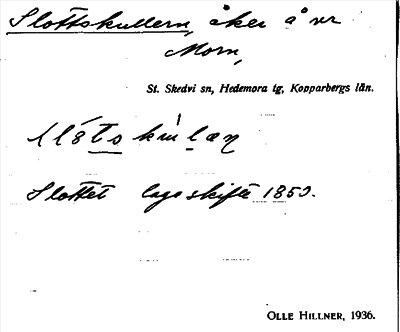 Slottskullern, åker å nr
Morn,
St. Skedvi sn, Hedemora tg, Kopparbergs län.
Slottet laga skifte 1850.
OLLE HILLNER, 1936.